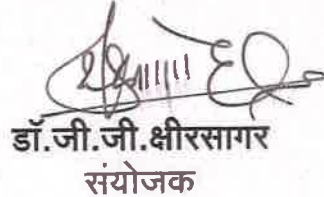 डॉ.जी.जी.क्षीरसागर
संयोजक